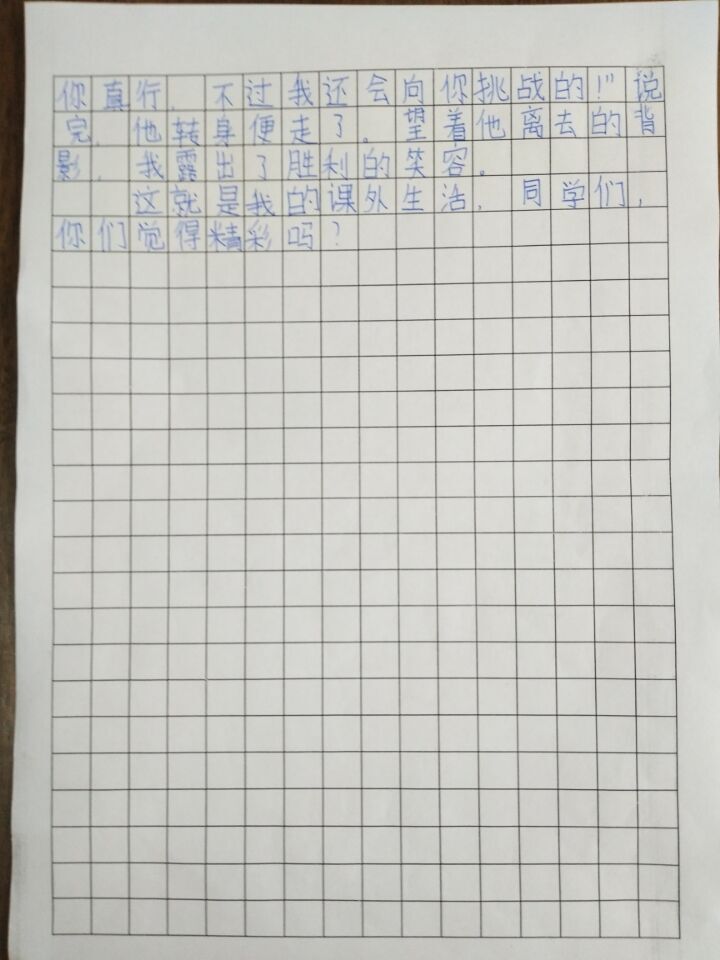 你真行，不过我还会向你挑战的！”说
完，他转身便走了。望着他离去的背
影，我露出了胜利的笑容。
这就是我的课外生活，同学们，
你们觉得精彩吗？